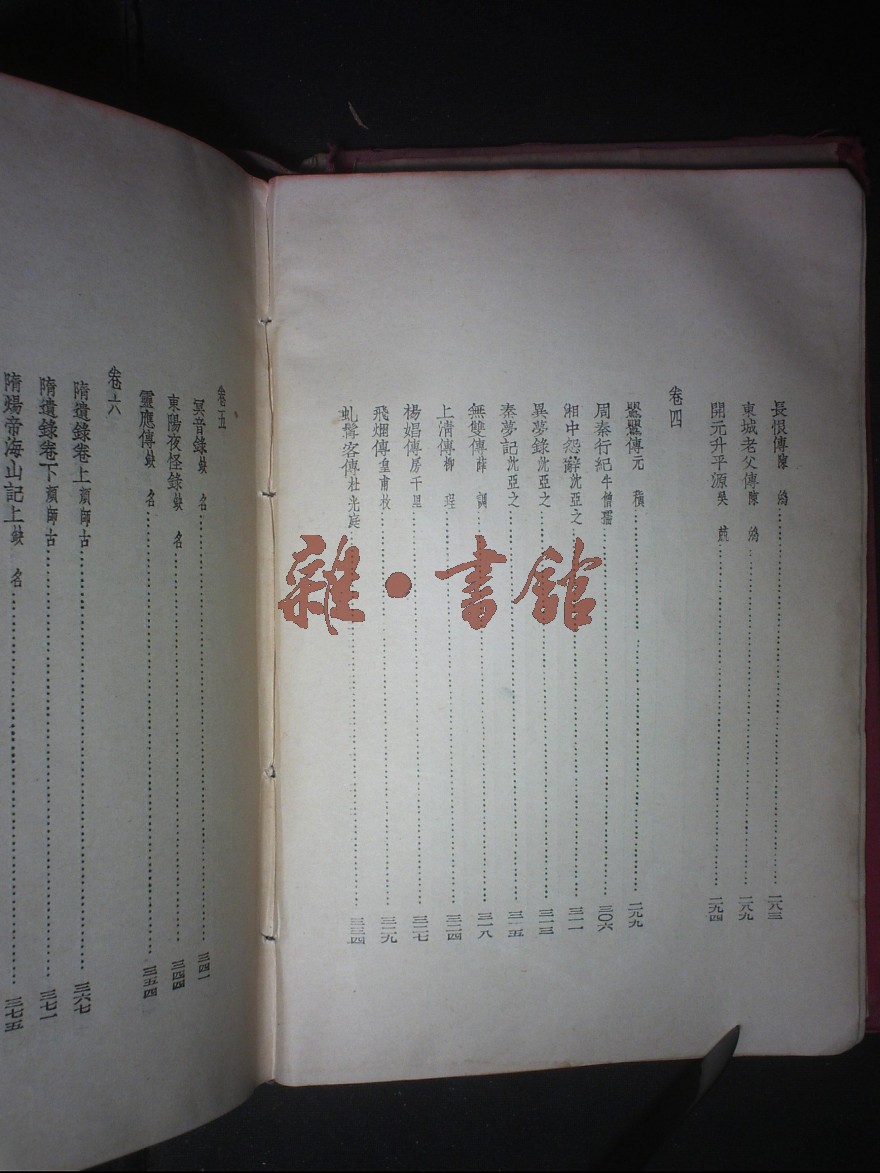 長恨傳陳 鴻 二八三
東城老父傳陳 鴻 二八九
開元升平源吳 兢 二九四
卷四
鶯鶯傳元 稹 二九九
周秦行紀牛僧孺 三〇六
湘中怨辭沈亞之 三一一
異夢錄沈亞之 三一三
秦夢記沈亞之 三一五
無雙傳薛 調 三一八
上清傳柳 珵 三二四
楊娼傳房千里 三二七
飛烟傳皇甫枚 三二九
虬髯客傳杜光庭 三三四
卷五
冥音錄缺 名 三四一
東陽夜怪錄缺 名 三四四
靈應傳缺 名 三五四
卷六
隋遺錄卷上顏師古 三六七
隋遺錄卷下顏師古 三七一
隋煬帝海山記上缺 名 三七五
雜·書館